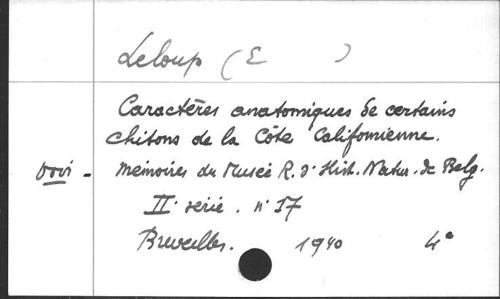 Leloup (E )
Caractères anatomiques de certains
chitons de la Côte Californienne.
Voir - Mémoires du Musée R. d'Hist. Natur. de Belg.
II serie. n° 17
Bruxelles. 1940 4°